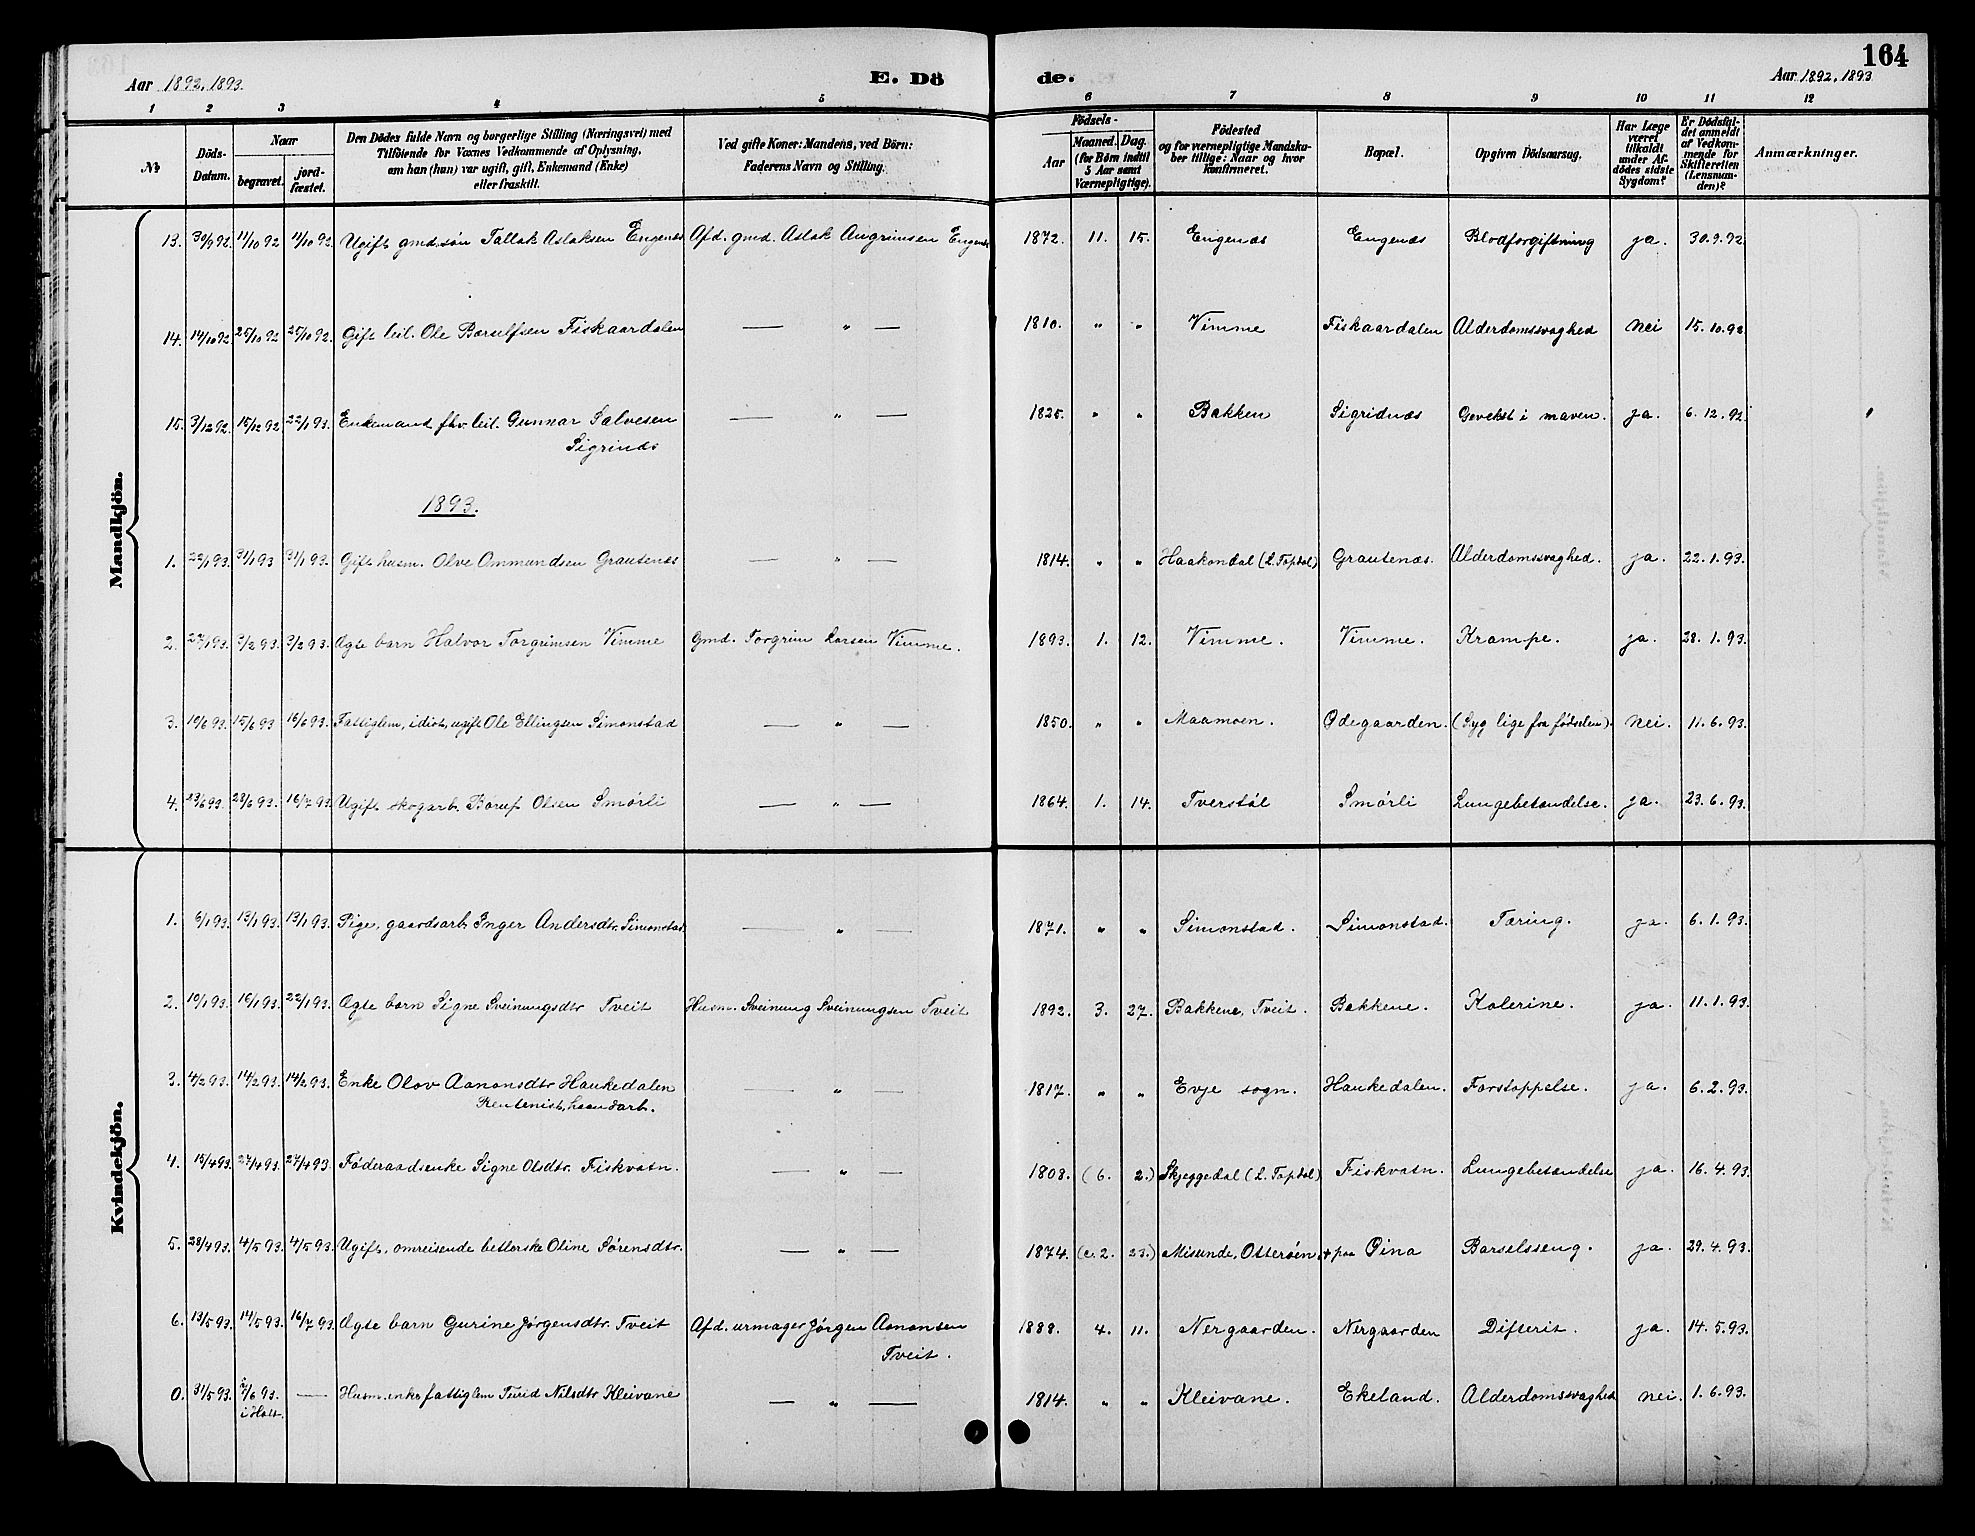 164
Aar 1892, 1893.
E. Dö
de.
Aar 1892, 1893
1 2 3 4 5 6 7 8 9 10 11 12
№
Döds-
Datum.
Naar
begravet.
jord-
fæstet.
Den Dödes fulde Navn og borgerlige Stilling (Næringsvei) med
Tilföiende for Voxnes Vedkommende af Oplysning,
om han (hun) var ugift, gift, Enkemand (Enke)
eller fraskilt.
Ved gifte Koner: Mandens, ved Börn:
Faderens Navn og Stilling.
Födsels-
Aar
Maaned. Dag.
(for Börn indtil
5 Aar samt
Værnepligtige).
Födested
og for værnepligtige Mandska-
ber tillige: Naar og hvor
konfirmeret.
Bopæl.
Opgiven Dödsaarsag.
Har Læge
været
tilkaldt
under Af-
dödes sidste
Sygdom?
Er Dödsfal-
det anmeldt
af Vedkom-
mende for
Skifteretten
(Lensman-
den)?
Anmærkninger.
Mandkjön.
13. 30/9 92. 11/10 92 11/10 92. Ugift gmd.søn Tallak Aslaksen Engenes Afd. gmd. Aslak Angrimsen Engenes 1872. 11. 15. Engenæs Engenæs Blodforgiftning ja. 30.9.92
14. 14/10 92 25/10 92 25/10 92. Gift leil. Ole Børulfsen Fiskaardalen — " — 1810. " " Vimme Fiskaardalen Alderdomssvaghed nei 15.10.92
15. 3/12 92. 15/12 92 22/1 93. Enkemand fhv. leil. Gunnar Salvesen — " — 1825. " " Bakken Sigridnæs Gevekst i maven. ja. 6.12.92.
Sigrinæs
1893.
1. 22/1 93. 31/1 93 31/1 93. Gift husm. Olve Ommundsen Grautenæs — " — 1814. " " Haakondal (L. Topdal) Grautenæs. Alderdomssvaghed. ja. 22.1.93.
2. 27/1 93. 3/2 93. 3/2 93. Ægte barn Halvor Torgrimsen Vimme Gmd. Torgrim Larsen Vimme. 1893. 1. 12. Vimme. Vimme. Krampe. ja. 28.1.93.
3. 10/6 93. 15/6 93 16/6 93. Fattiglem, idiot, ugift Ole Ellingsen Simonstad — " — 1850. " " Maamoen. Ødegaarden. (Syg lige fra fødselen). nei. 11.6.93.
4. 23/6 93. 28/6 93. 16/7 93. Ugift skogarb. Børuf Olsen Smørli — " — 1864. 1. 14. Tverstøl Smørli Lungebetændelse. ja. 23.6.93.
Kvindekjön.
1. 6/1 93. 13/1 93. 13/1 93. Pige, gaardsarb. Inger Andersdtr. Simonstad. — " — 1871. " " Simonstad. Simonstad. Tæring. ja. 6.1.93.
2. 10/1 93. 16/1 93. 22/1 93. Ægte barn Signe Sveinungsdtr Tveit Husm. Sveinung Sveinungsen Tveit 1892. 3. 27. Bakkene, Tveit. Bakkene. Kolerine. ja. 11.1.93.
3. 4/2 93. 14/2 93. 14/2 93. Enke Olov Aanonsdtr Haukedalen — " — 1817. " " Evje sogn. Haukedalen. Forstoppelse. ja. 6.2.93.
Rentenist, haandarb.
4. 15/4 93. 27/4 93. 27/4 93. Føderaadsenke Signe Olsdtr. Fiskvatn. — " — 1808. (6. 2.) Skjeggedal (L. Topdal) Fiskvatn. Lungebetændelse ja. 16.4.93.
5. 28/4 93. 4/5 93. 4/5 93. Ugift, omreisende betlerske Oline Sørensdtr. — " — 1874. (c. 2. 23.) Misunde, Otterøen, + paa Øina Barselsseng. ja. 29.4.93.
6. 13/5 93. 14/5 93. 16/7 93. Ægte barn Gurine Jørgensdtr. Tveit Afd. urmager Jørgen Aanonsen 1888. 4. 11. Nergaarden. Nergaarden Difterit. ja. 14.5.93.
Tveit.
0. 31/5 93. 2/6 93. — Husm.enke fattiglem Turid Nilsdtr Kleivane — " — 1814. " " Kleivane. Ekeland. Alderdomssvaghed nei. 1.6.93.
i Holt.